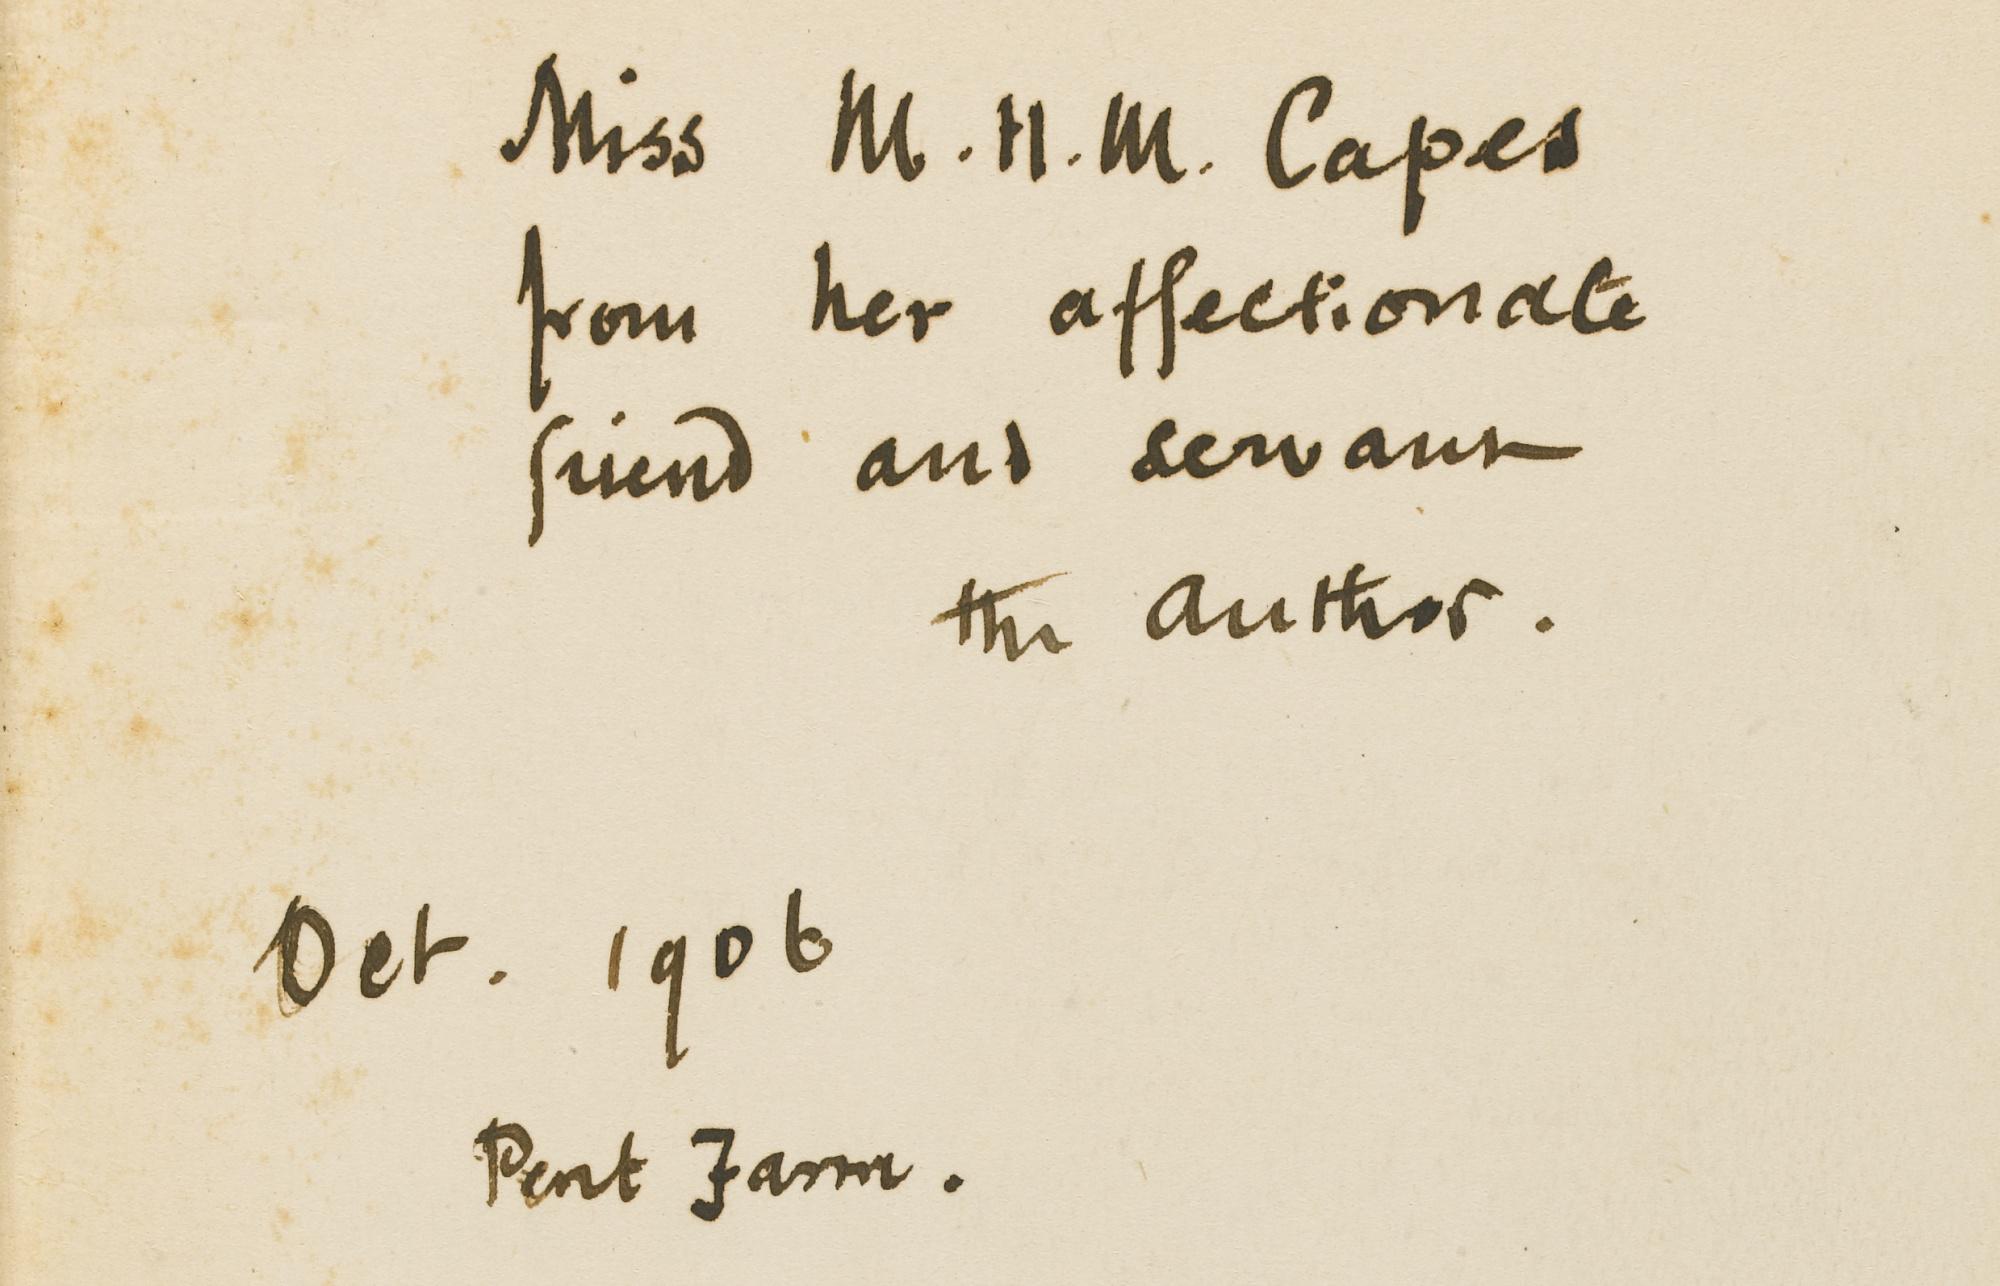 Miss M.H.M. Capes
from her affectionate
friend and servant
the author.
Oct. 1906
Pent Farm.